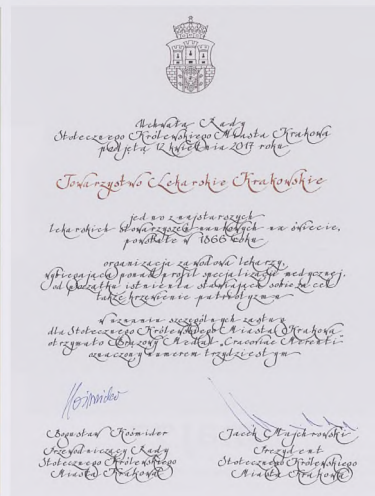 Uchwałą Rady
Stołecznego Królewskiego Miasta Krakowa
podjętą 12 kwietnia 2017 roku
Towarzystwo Lekarskie Krakowskie
jedno z najstarszych
lekarskich stowarzyszeń naukowych na świecie,
powstałe w 1866 roku
organizacja zawodowa lekarzy,
wybiegająca ponad profil specjalizacji medycznej,
od początku istnienia stawiających sobie za cel
także krzewienie patriotyzmu
w uznaniu szczególnych zasług
dla Stołecznego Królewskiego Miasta Krakowa
otrzymało Brązowy Medal „Cracoviae Merenti”
oznaczony numerem trzydziestym
Kośmider
Bogusław Kośmider
Przewodniczący Rady
Stołecznego Królewskiego
Miasta Krakowa
Jacek Majchrowski
Prezydent
Stołecznego Królewskiego
Miasta Krakowa